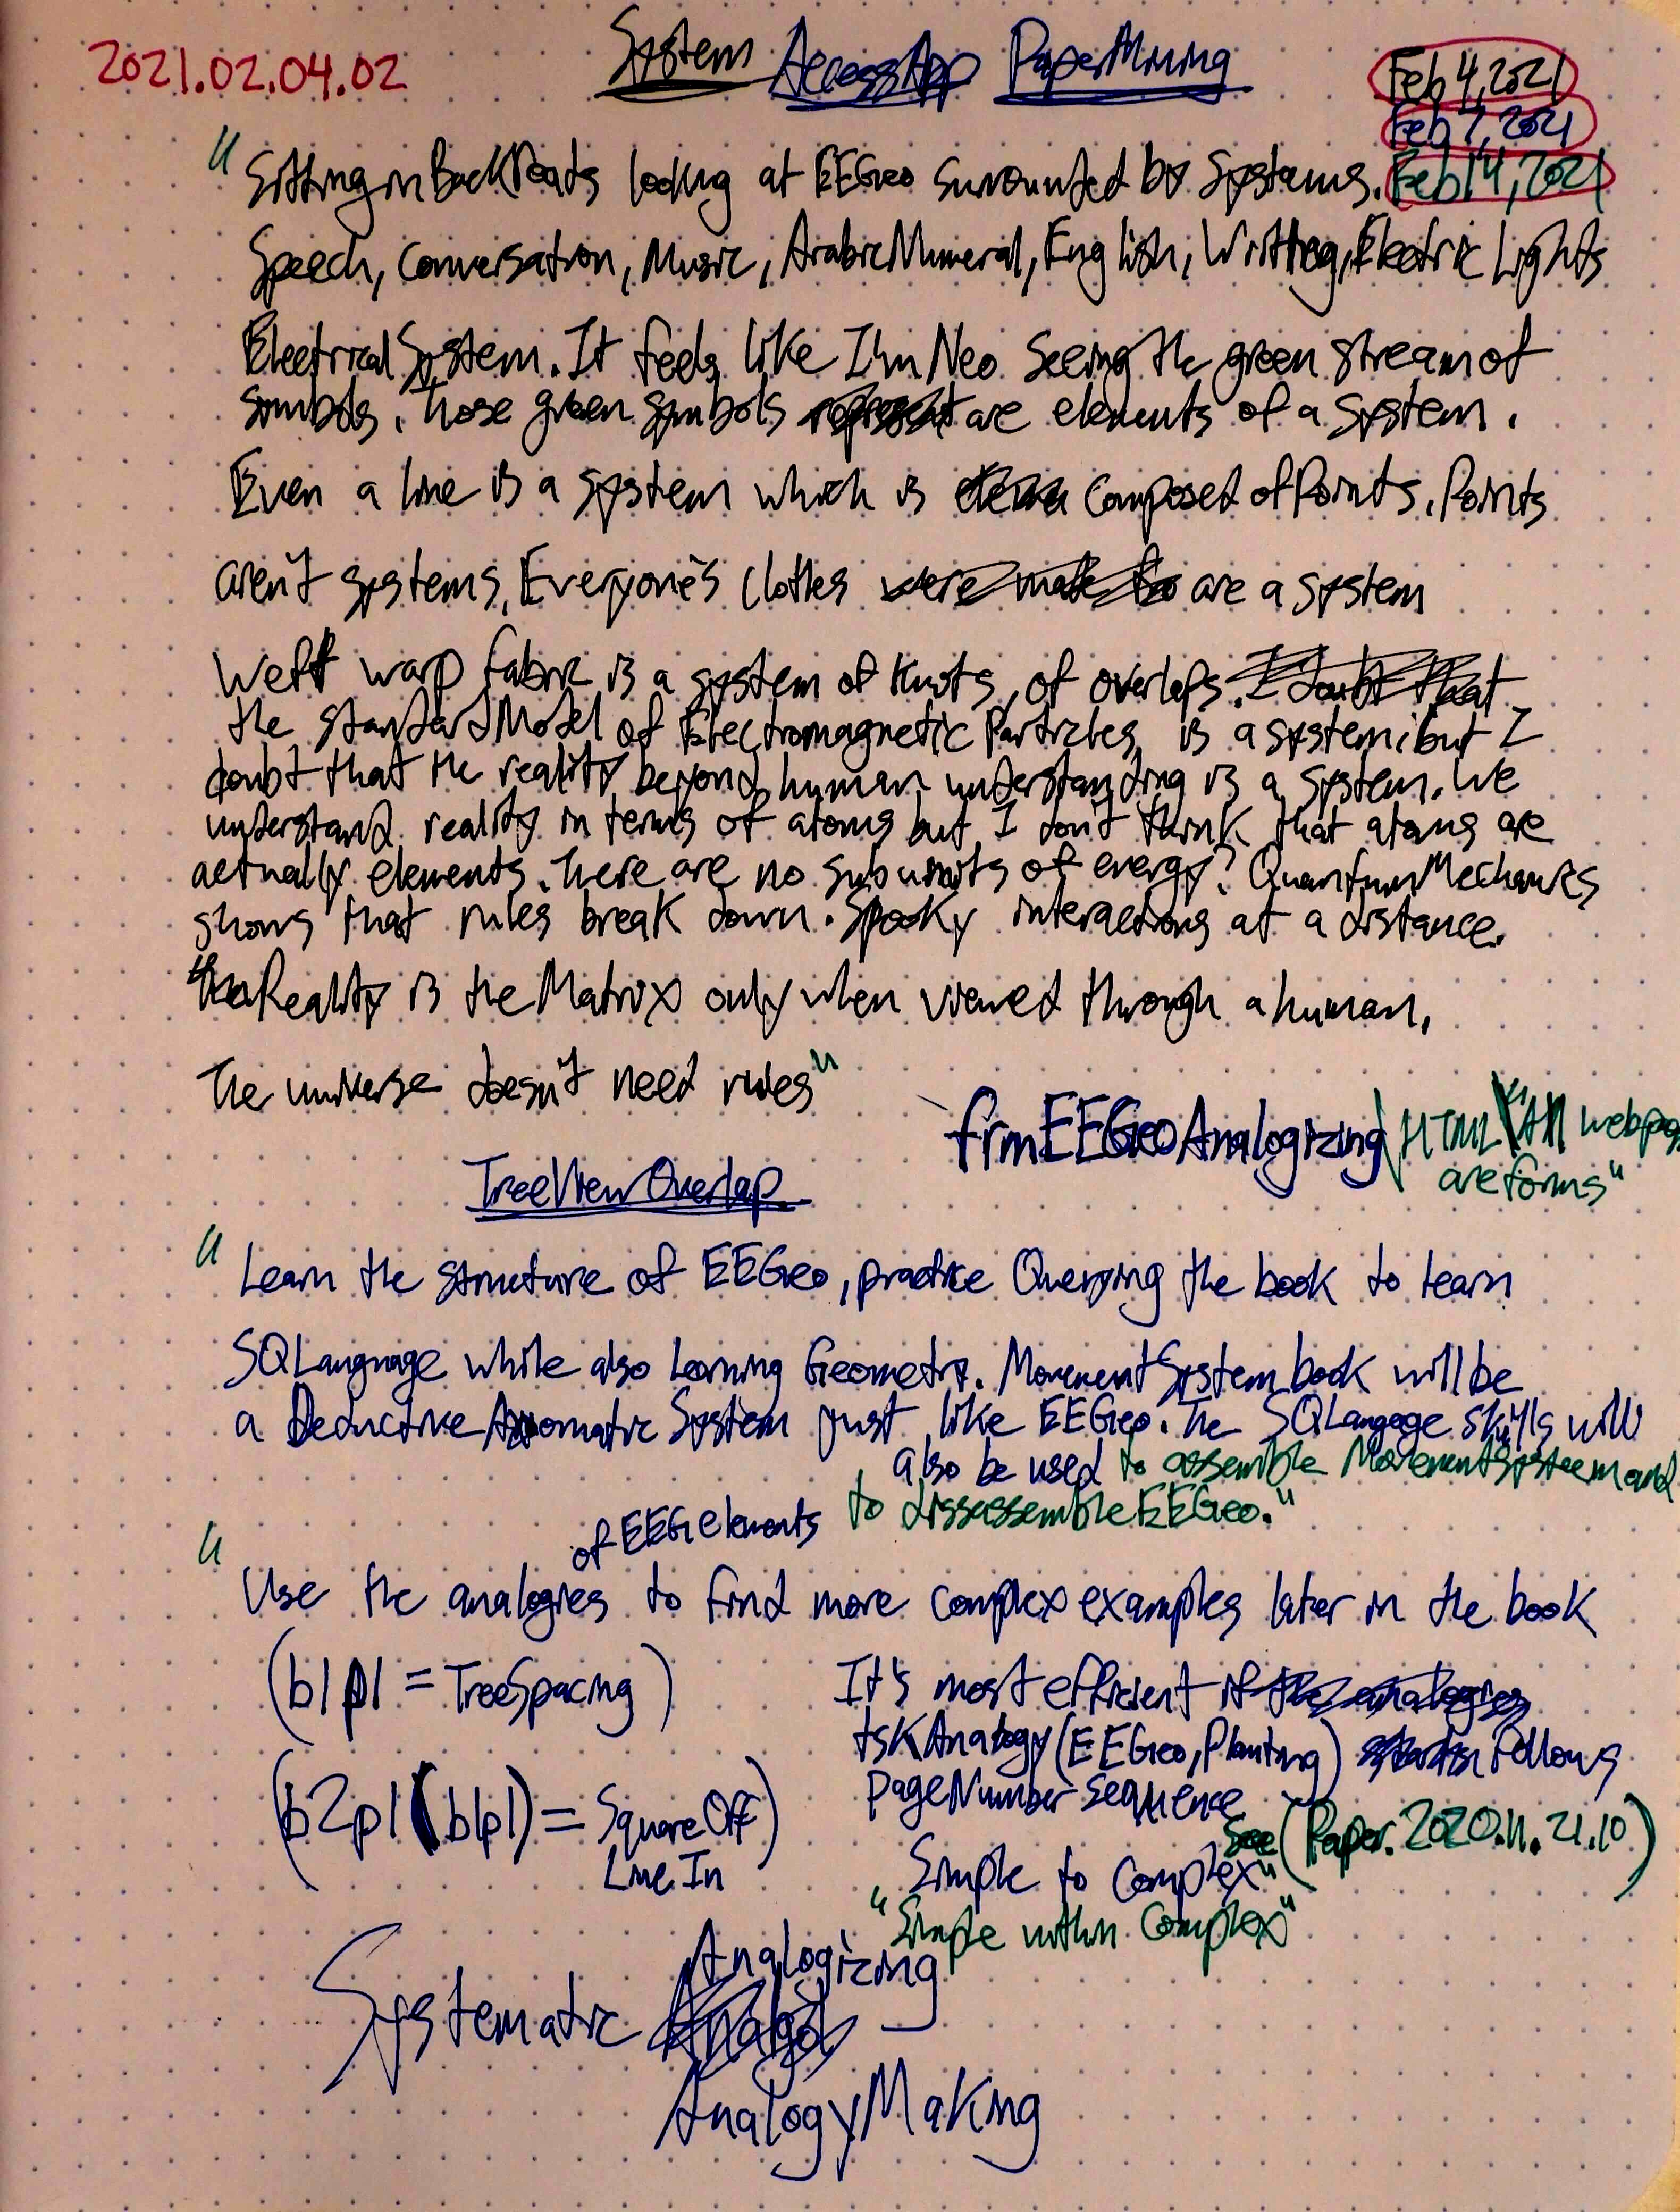 2021.02.04.02
System AccessApp PaperMining
Feb 4, 2021
Feb 7, 2021
Feb 14, 2021
"Sitting in BackRoads looking at EEGeo surrounded by Systems.
Speech, Conversation, Music, ArabicNumeral, English, Writing, Electric Lights
Electrical System. It feels like I'm Neo seeing the green stream of
symbols. Those green symbols represent are elements of a system.
Even a line is a system which is composed of Points. Points
aren't systems. Everyone's clothes were made are a system
Weft warp fabric is a system of knots, of overlaps. I doubt that
the standard Model of Electromagnetic Particles, is a system; but I
doubt that the reality beyond human understanding is a system. We
understand reality in terms of atoms but I don't think that atoms are
actually elements. There are no subunits of energy? Quantum Mechanics
shows that rules break down. Spooky interactions at a distance.
Reality is the Matrix only when viewed through a human.
The universe doesn't need rules"
frm EEGeo Analogizing HTML "All webpag
are forms"
TreeViewOverlap
"Learn the structure of EEGeo, practice Querying the book to learn
SQLanguage while also Learning Geometry. MovementSystem book will be
a Deductive Axiomatic System just like EEGeo. The SQLangage skills will
also be used to assemble MovementSysteem and
to dissassemble EEGeo."
of EEG elements
"Use the analogies to find more complex examples later in the book
(b1p1 = TreeSpacing)
It's most efficient if the analogies
tskAnalogy(EEGeo, Planting) follows
pageNumber sequence
(b2p1(b1p1) = Square Off
Line In)
See (Paper.2020.11.21.10)
Simple to Complex"
"Simple within Complex"
Analogizing
Systematic Analog
AnalogyMaking